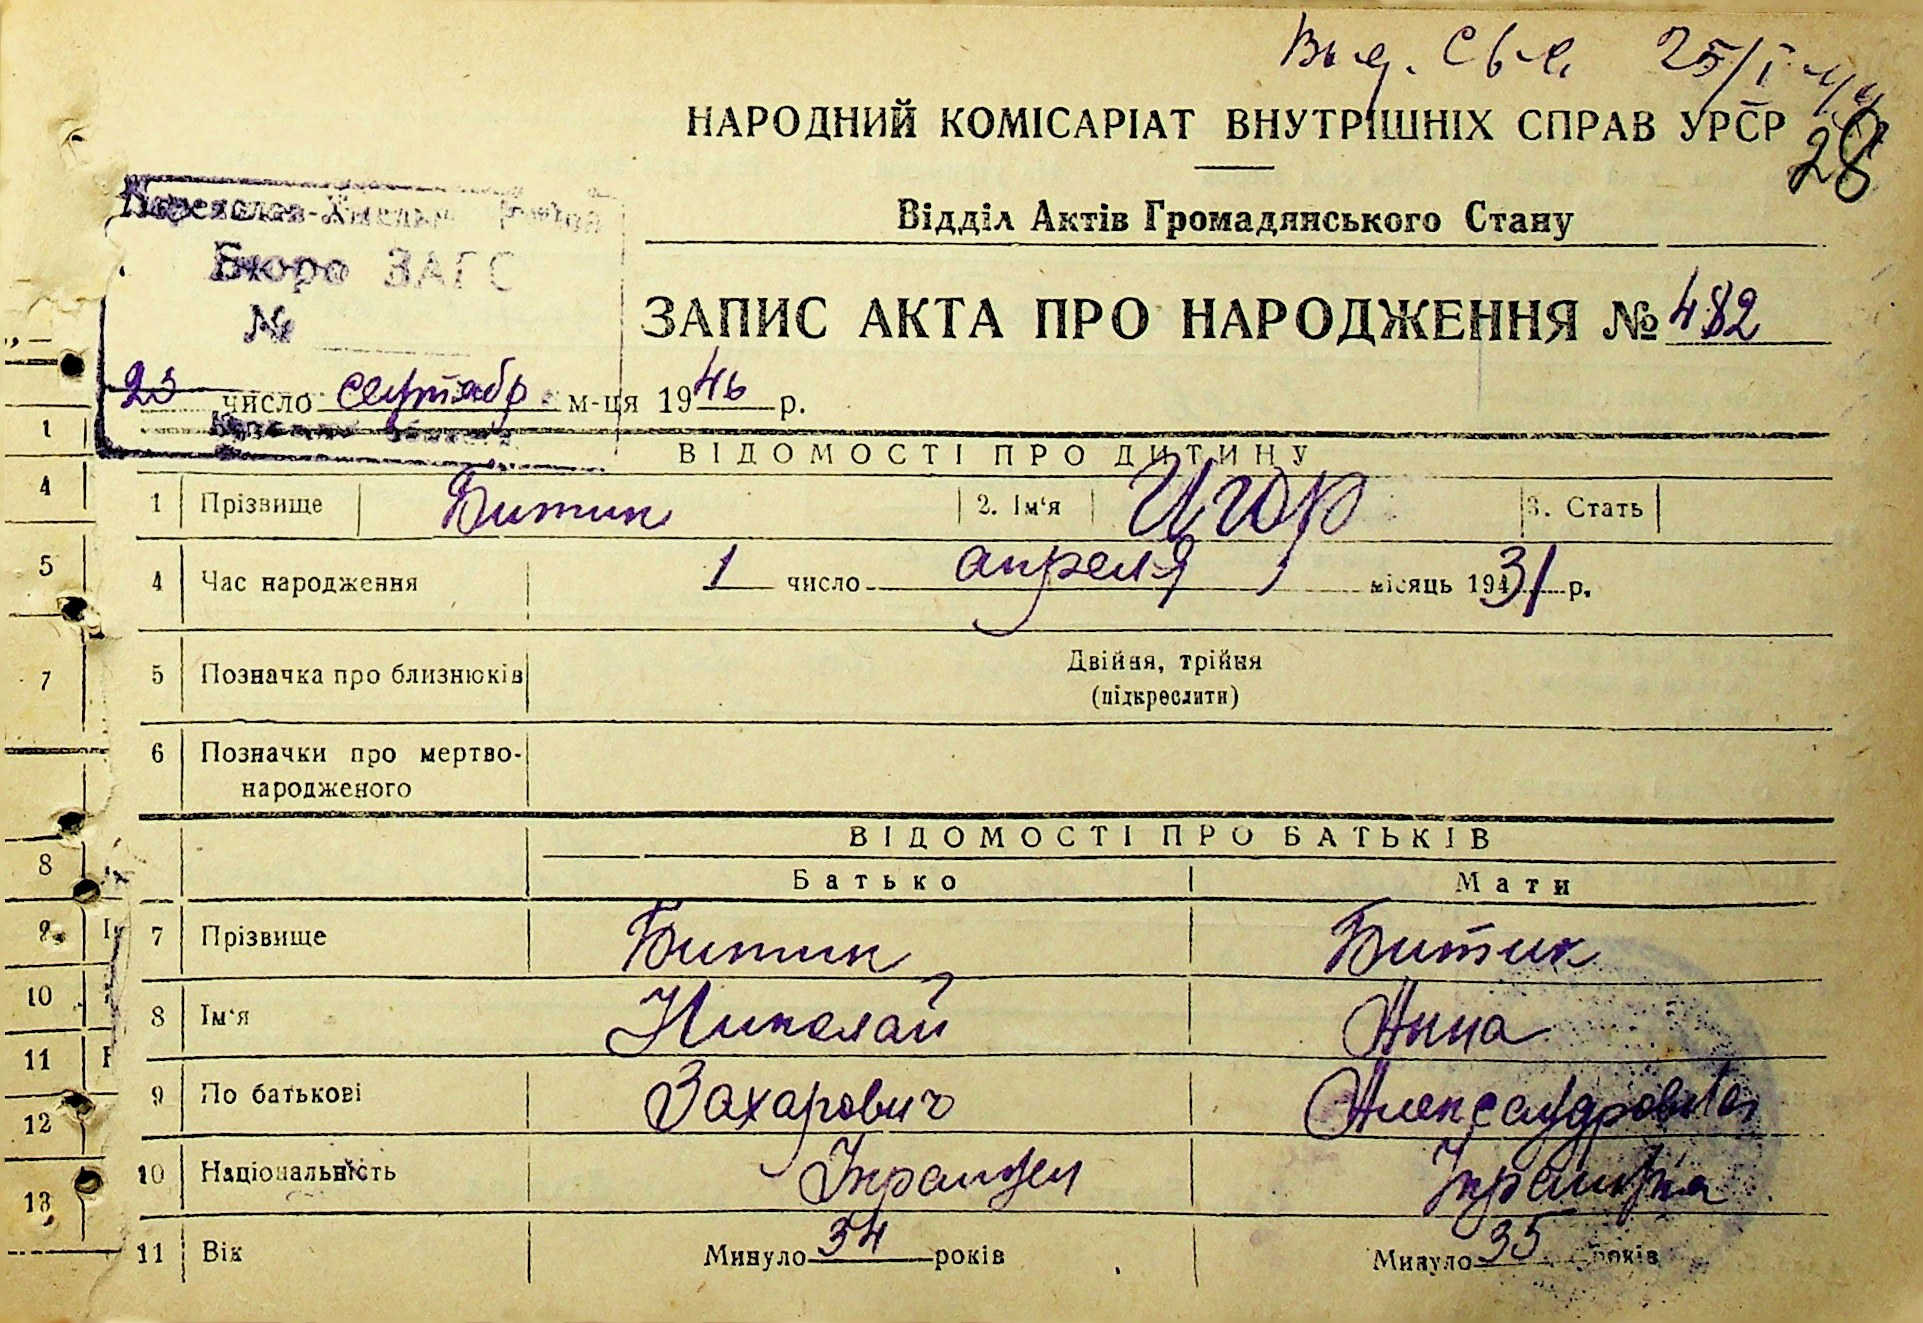 Выд. Св-е. 25/I-44
НАРОДНИЙ КОМІСАРІАТ ВНУТРІШНІХ СПРАВ УРСР
28
Відділ Актів Громадянського Стану
Бюро ЗАГС
№
ЗАПИС АКТА ПРО НАРОДЖЕННЯ № 482
23 число сентябр м-ця 1946 р.
ВІДОМОСТІ ПРО ДИТИНУ
1 Прізвище Битик 2. Ім'я Игор 3. Стать
4 Час народження 1 число апреля місяць 1931 р.
5 Позначка про близнюків Двійня, трійня
(підкреслити)
6 Позначки про мертво-
народженого
ВІДОМОСТІ ПРО БАТЬКІВ
Батько Мати
7 Прізвище Битик Битик
8 Ім'я Николай Анна
9 По батькові Захарович Александровна
10 Національність Украинец Украинка
11 Вік Минуло 34 років Минуло 35 років
1
4
5
7
8
9
10
11
12
13